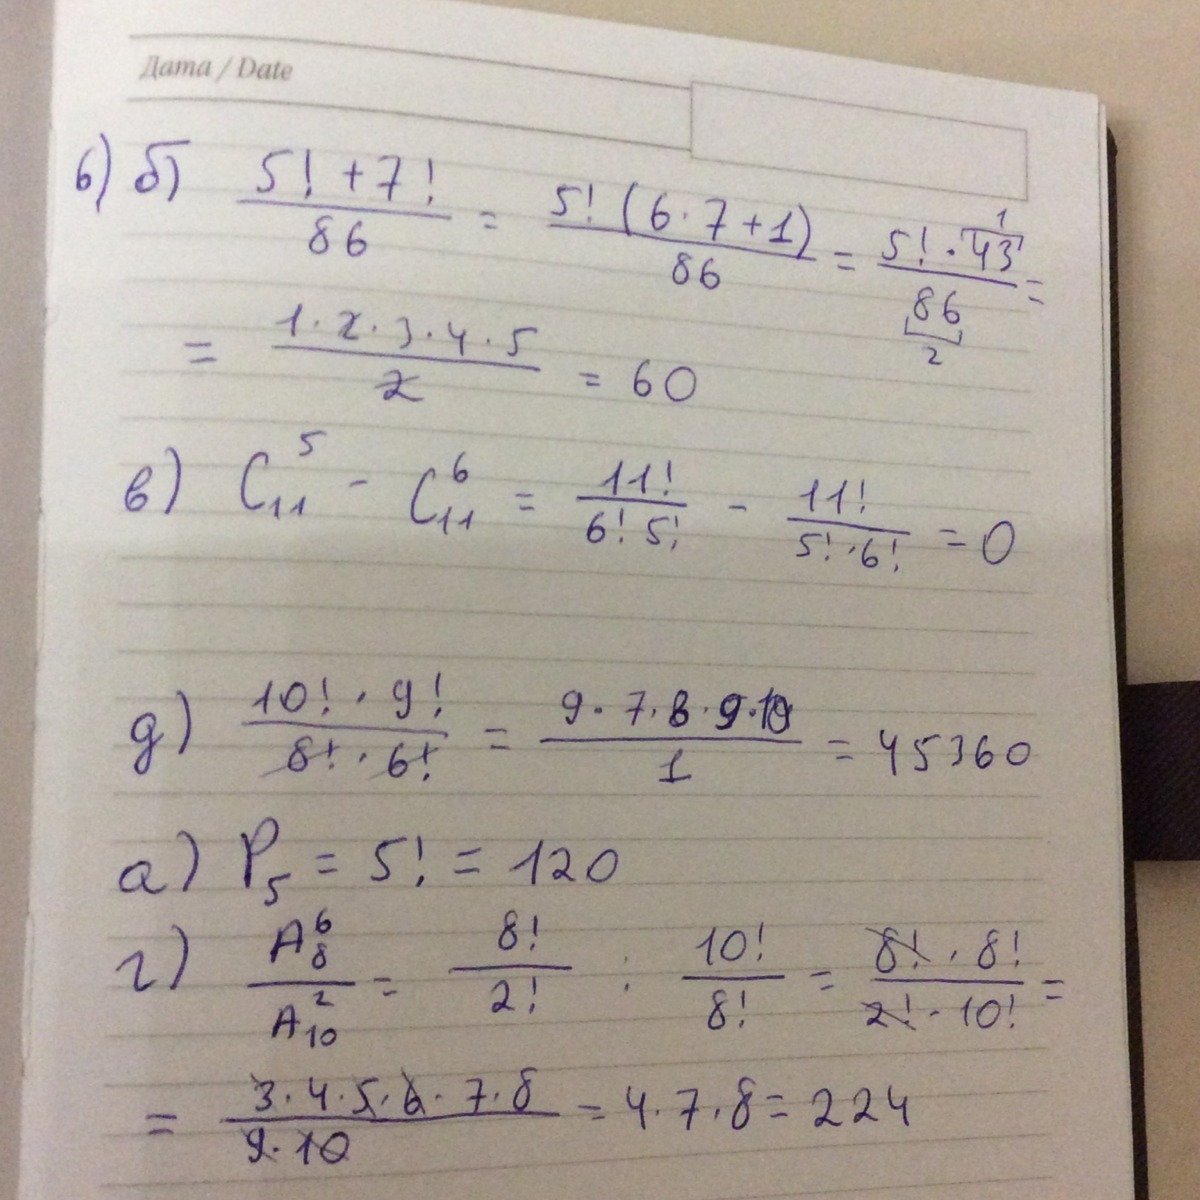 Дата / Date
6) б) (5! + 7!)/86 = (5! (6 · 7 + 1))/86 = (5! · 43)/86 =
1
2
= (1 · 2 · 3 · 4 · 5)/2 = 60
в) C₁₁⁵ - C₁₁⁶ = 11!/(6! 5!) - 11!/(5! · 6!) = 0
д) (10! · 9!)/(8! · 6!) = (9 · 7 · 8 · 9 · 10)/1 = 45360
а) P₅ = 5! = 120
г) A₈⁶/A₁₀² = 8!/2! : 10!/8! = (8! · 8!)/(2! · 10!) =
= (3 · 4 · 5 · 6 · 7 · 8)/(9 · 10) = 4 · 7 · 8 = 224